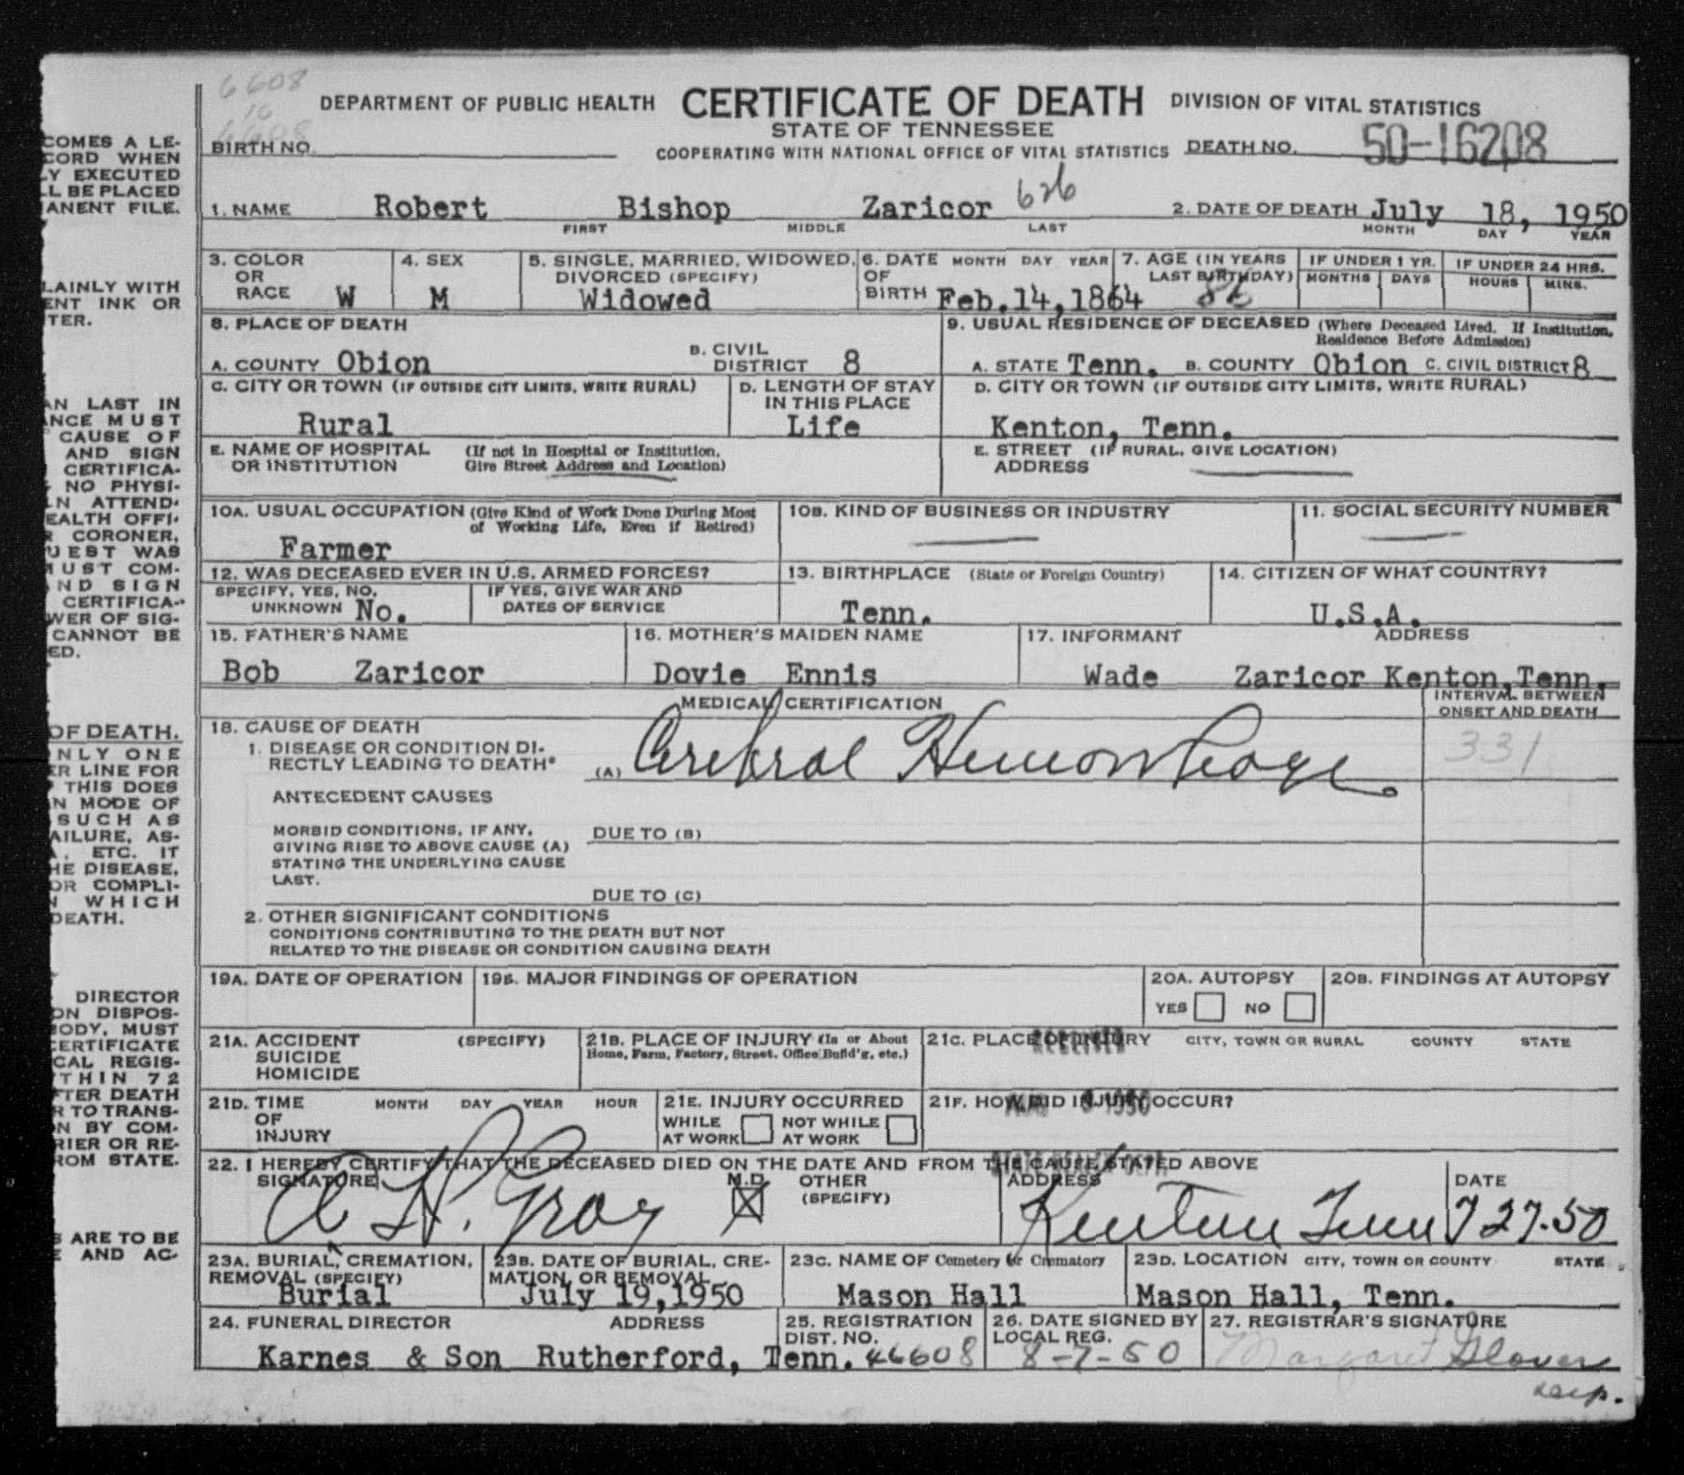 6608
10
6608
DEPARTMENT OF PUBLIC HEALTH CERTIFICATE OF DEATH DIVISION OF VITAL STATISTICS
STATE OF TENNESSEE
BIRTH NO. COOPERATING WITH NATIONAL OFFICE OF VITAL STATISTICS DEATH NO. 50-16208
1. NAME Robert Bishop Zaricor 626 2. DATE OF DEATH July 18, 1950
FIRST MIDDLE LAST MONTH DAY YEAR
3. COLOR OR RACE W 4. SEX M 5. SINGLE, MARRIED, WIDOWED, DIVORCED (SPECIFY) Widowed 6. DATE OF BIRTH MONTH DAY YEAR Feb.14,1864 7. AGE (IN YEARS LAST BIRTHDAY) 86 IF UNDER 1 YR. MONTHS DAYS IF UNDER 24 HRS. HOURS MINS.
8. PLACE OF DEATH 9. USUAL RESIDENCE OF DECEASED (Where Deceased Lived. If Institution, Residence Before Admission)
A. COUNTY Obion B. CIVIL DISTRICT 8 A. STATE Tenn. B. COUNTY Obion C. CIVIL DISTRICT 8
C. CITY OR TOWN (IF OUTSIDE CITY LIMITS, WRITE RURAL) D. LENGTH OF STAY IN THIS PLACE D. CITY OR TOWN (IF OUTSIDE CITY LIMITS, WRITE RURAL)
Rural Life Kenton, Tenn.
E. NAME OF HOSPITAL OR INSTITUTION (If not in Hospital or Institution, Give Street Address and Location) E. STREET ADDRESS (IF RURAL, GIVE LOCATION)
10A. USUAL OCCUPATION (Give Kind of Work Done During Most of Working Life, Even if Retired) 10B. KIND OF BUSINESS OR INDUSTRY 11. SOCIAL SECURITY NUMBER
Farmer
12. WAS DECEASED EVER IN U.S. ARMED FORCES? 13. BIRTHPLACE (State or Foreign Country) 14. CITIZEN OF WHAT COUNTRY?
SPECIFY, YES, NO, UNKNOWN No. IF YES, GIVE WAR AND DATES OF SERVICE Tenn. U.S.A.
15. FATHER'S NAME 16. MOTHER'S MAIDEN NAME 17. INFORMANT ADDRESS
Bob Zaricor Dovie Ennis Wade Zaricor Kenton,Tenn.
MEDICAL CERTIFICATION INTERVAL BETWEEN ONSET AND DEATH
18. CAUSE OF DEATH
1. DISEASE OR CONDITION DIRECTLY LEADING TO DEATH* (A) Cerebral Hemorrhage 331
ANTECEDENT CAUSES
MORBID CONDITIONS, IF ANY, GIVING RISE TO ABOVE CAUSE (A) STATING THE UNDERLYING CAUSE LAST. DUE TO (B)
DUE TO (C)
2. OTHER SIGNIFICANT CONDITIONS
CONDITIONS CONTRIBUTING TO THE DEATH BUT NOT
RELATED TO THE DISEASE OR CONDITION CAUSING DEATH
19A. DATE OF OPERATION 19B. MAJOR FINDINGS OF OPERATION 20A. AUTOPSY 20B. FINDINGS AT AUTOPSY
YES NO
21A. ACCIDENT SUICIDE HOMICIDE (SPECIFY) 21B. PLACE OF INJURY (In or About Home, Farm, Factory, Street, Office Build'g, etc.) 21C. PLACE OF INJURY CITY, TOWN OR RURAL COUNTY STATE
RECEIVED
21D. TIME OF INJURY MONTH DAY YEAR HOUR 21E. INJURY OCCURRED 21F. HOW DID INJURY OCCUR?
WHILE AT WORK NOT WHILE AT WORK
22. I HEREBY CERTIFY THAT THE DECEASED DIED ON THE DATE AND FROM THE CAUSE STATED ABOVE
SIGNATURE A H. Gray M.D. OTHER (SPECIFY) ADDRESS Kenton Tenn DATE 7 27-50
23A. BURIAL, CREMATION, REMOVAL (SPECIFY) 23B. DATE OF BURIAL, CREMATION, OR REMOVAL 23C. NAME OF Cemetery or Crematory 23D. LOCATION CITY, TOWN OR COUNTY STATE
Burial July 19,1950 Mason Hall Mason Hall, Tenn.
24. FUNERAL DIRECTOR ADDRESS 25. REGISTRATION DIST. NO. 26. DATE SIGNED BY LOCAL REG. 27. REGISTRAR'S SIGNATURE
Karnes & Son Rutherford, Tenn. 46608 8-7-50 Margaret Glover
COMES A LE-
CORD WHEN
LY EXECUTED
LL BE PLACED
ANENT FILE.
LAINLY WITH
ENT INK OR
TER.
AN LAST IN
NCE MUST
CAUSE OF
AND SIGN
CERTIFICA-
NO PHYSI-
IN ATTEND-
EALTH OFFI-
CORONER,
UEST WAS
MUST COM-
ND SIGN
CERTIFICA-
WER OF SIG-
CANNOT BE
ED.
OF DEATH.
NLY ONE
ER LINE FOR
THIS DOES
N MODE OF
SUCH AS
AILURE, AS-
, ETC. IT
HE DISEASE,
OR COMPLI-
WHICH
DEATH.
DIRECTOR
ON DISPOS-
BODY, MUST
CERTIFICATE
CAL REGIS-
THIN 72
FTER DEATH
R TO TRANS-
N BY COM-
RIER OR RE-
ROM STATE.
ARE TO BE
AND AC-